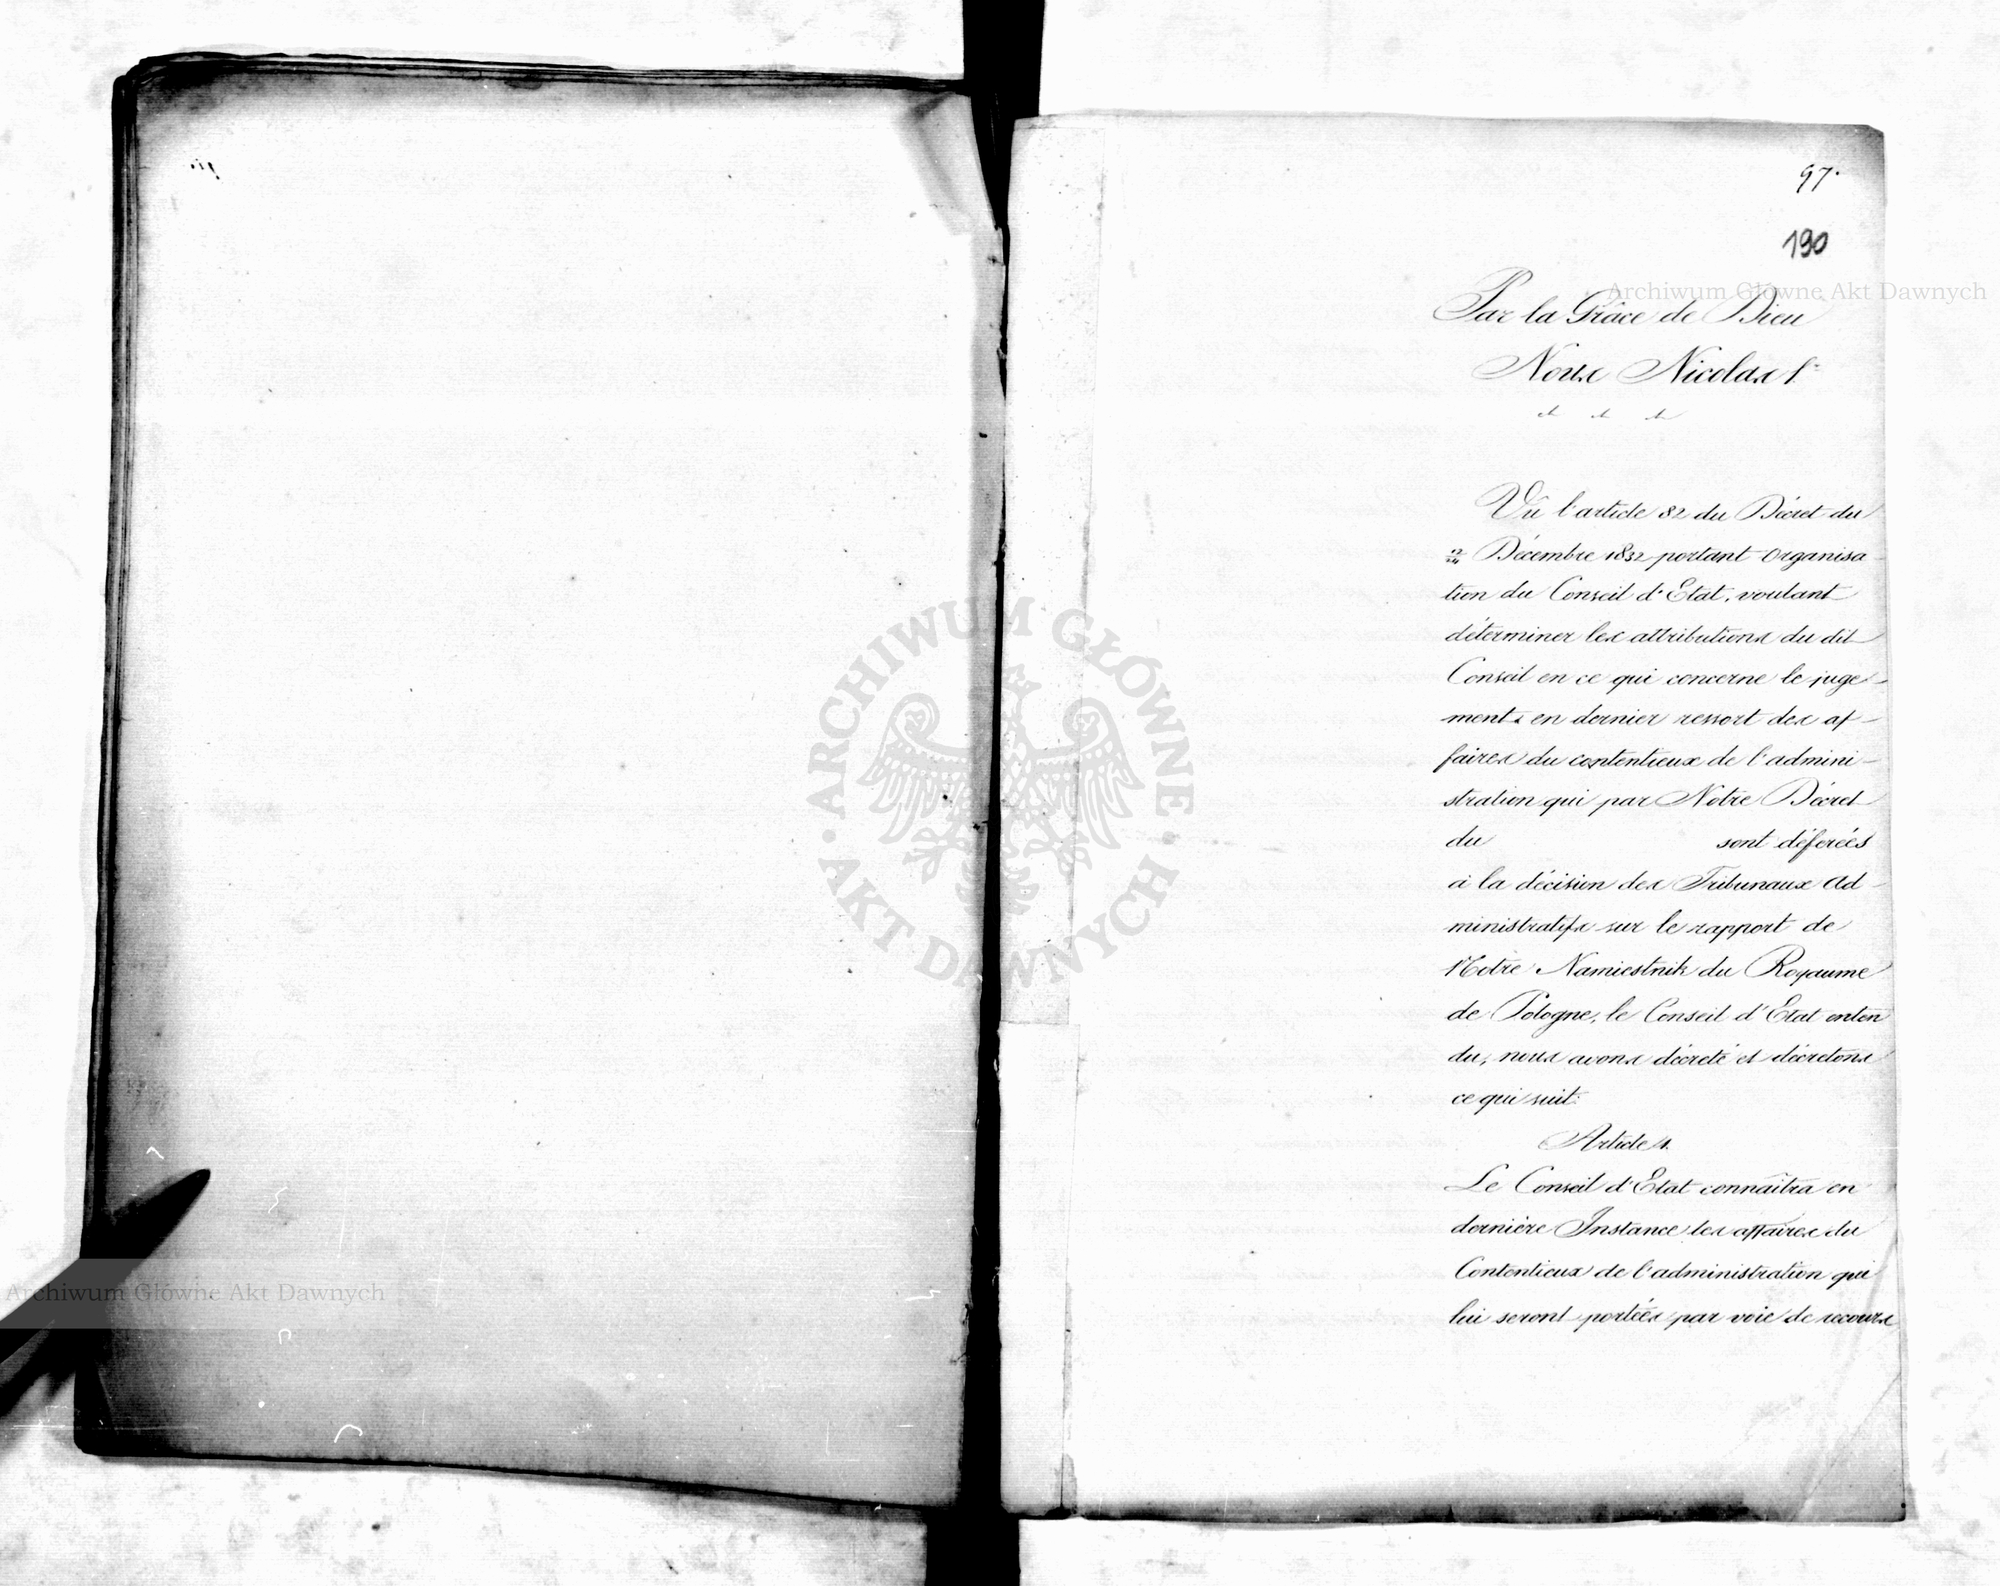 97.
190
Archiwum Główne Akt Dawnych
Par la Grâce de Dieu
Nous Nicolas I.er
etc etc etc
Vû l'article 82 du Décret du
12/24 Décembre 1832 portant Organisa-
tion du Conseil d'Etat, voulant
déterminer les attributions du dit
Conseil en ce qui concerne le juge-
ments en dernier ressort des af-
faires du contentieux de l'admini-
stration qui par Notre Décret
du sont déferées
à la décision des Tribunaux Ad-
ministratifs sur le rapport de
Notre Namiestnik du Royaume
de Pologne, le Conseil d'Etat enten
du, nous avons décreté et décretons
ce qui suit:
Article 1.
Le Conseil d'Etat connaîtra en
dernière Instance les affaires du
Contentieux de l'administration qui
lui seront portées par voie de recours
ARCHIWUM GŁÓWNE
AKT DAWNYCH
Archiwum Główne Akt Dawnych